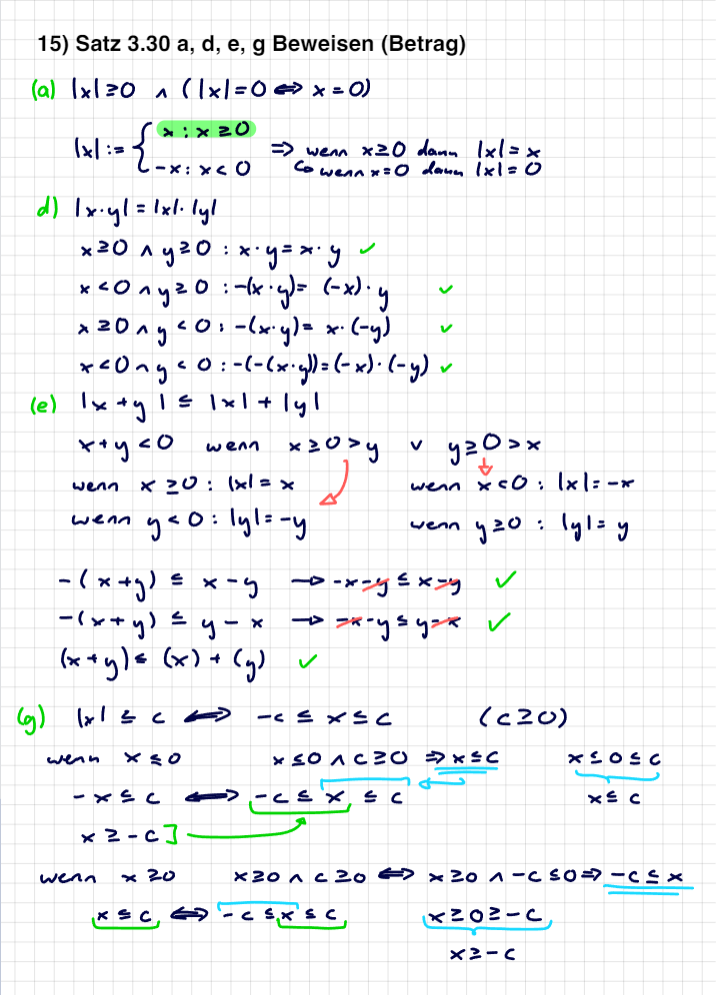 15) Satz 3.30 a, d, e, g Beweisen (Betrag)
(a) |x| ≥ 0 ∧ ( |x| = 0 ⇔ x = 0)
|x| := { x : x ≥ 0
-x : x < 0
⇒ wenn x ≥ 0 dann |x| = x
↳ wenn x = 0 dann |x| = 0
d) |x·y| = |x|·|y|
x ≥ 0 ∧ y ≥ 0 : x·y = x·y ✓
x < 0 ∧ y ≥ 0 : -(x·y) = (-x)·y ✓
x ≥ 0 ∧ y < 0 : -(x·y) = x·(-y) ✓
x < 0 ∧ y < 0 : -(-(x·y)) = (-x)·(-y) ✓
(e) |x + y| ≤ |x| + |y|
x + y < 0 wenn x ≥ 0 > y ∨ y ≥ 0 > x
wenn x ≥ 0 : |x| = x wenn x < 0 : |x| = -x
wenn y < 0 : |y| = -y wenn y ≥ 0 : |y| = y
-(x + y) ≤ x - y → -x - y ≤ x - y ✓
-(x + y) ≤ y - x → -x - y ≤ y - x ✓
(x + y) ≤ (x) + (y) ✓
(g) |x| ≤ c ⇔ -c ≤ x ≤ c (c ≥ 0)
wenn x ≤ 0 x ≤ 0 ∧ c ≥ 0 ⇒ x ≤ c x ≤ 0 ≤ c
-x ≤ c ⇔ -c ≤ x ≤ c x ≤ c
x ≥ -c ]
wenn x ≥ 0 x ≥ 0 ∧ c ≥ 0 ⇔ x ≥ 0 ∧ -c ≤ 0 ⇒ -c ≤ x
x ≤ c ⇔ -c ≤ x ≤ c x ≥ 0 ≥ -c
x ≥ -c